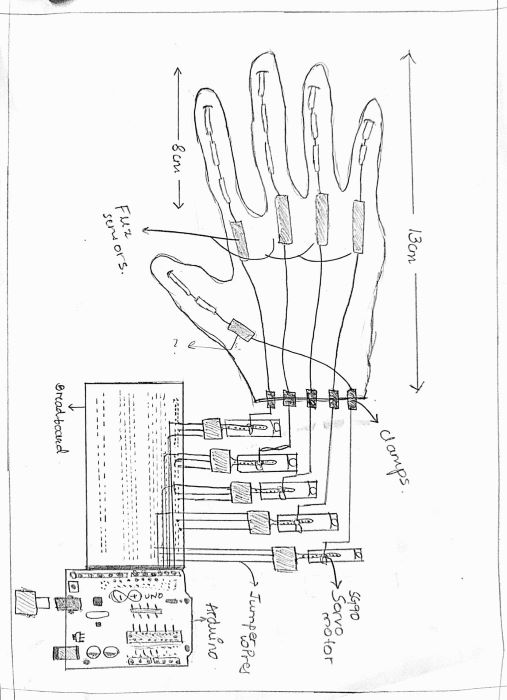 13cm
clamps.
SG90
Servo
motor
Jumper
Arduino
UNO
8cm
sensors.
Breadboard